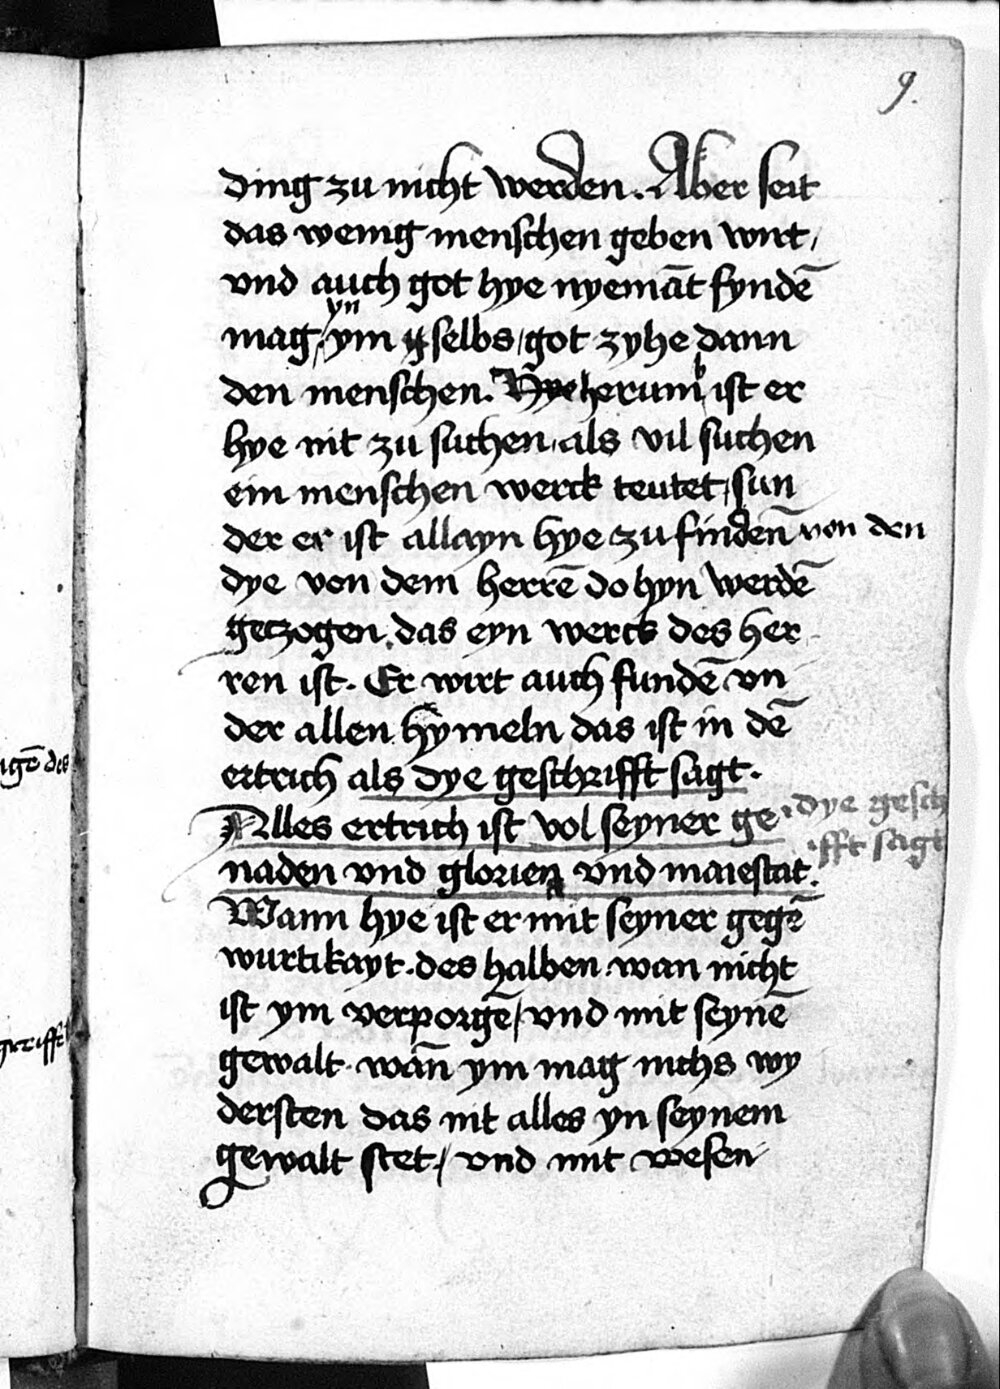 9.
ding zu nicht werden. Aber seit
das wenig menschen geben wirt/
vnd auch got hye nyemāt fyndē
mag/ yn ym selbs/got zyhe dann
den menschen. herumb ist er
hye nit zu suchen als vil suchen
ein menschen werck teutet/sun
der er ist allayn hye zu findenn von den
dye von dem herrē do hyn werdē
getzogen. das eyn werck des her
ren ist. Er wirt auch fundē vn
der allen hymeln das ist in dē
ertrich als dye geschrifft sagt.
Alles ertrich ist vol seyner ge
dye gesch
ifft sagt
naden vnd glorien vnd maiestat.
Wann hye ist er mit seyner gegē
wurtikayt. des halben wan nicht
ist ym verporgē/ vnd mit seynē
gewalt. wān ym mag nichs wy
dersten das nit alles yn seynem
gewalt stet/ vnd mit wesen
igē des